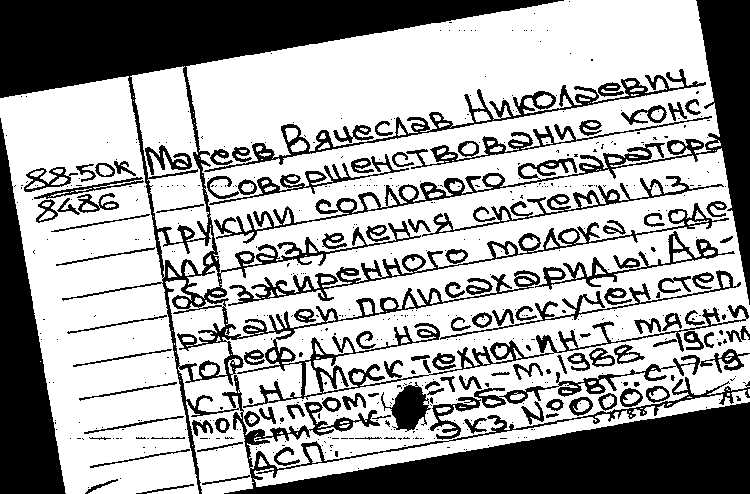 88-50к
8486
Макеев, Вячеслав Николаевич.
Совершенствование конс-
трукции соплового сепаратора
для разделения системы из
обезжиренного молока, соде
ржащей полисахариды: Ав-
тореф. дис. на соиск. учен. степ.
к.т.н. / Моск. технол. ин-т мясн. и
молоч. пром-сти. - м., 1988 - 19с.:ил
список работ авт.: с. 17-19
Экз. № 00004
ДСП.